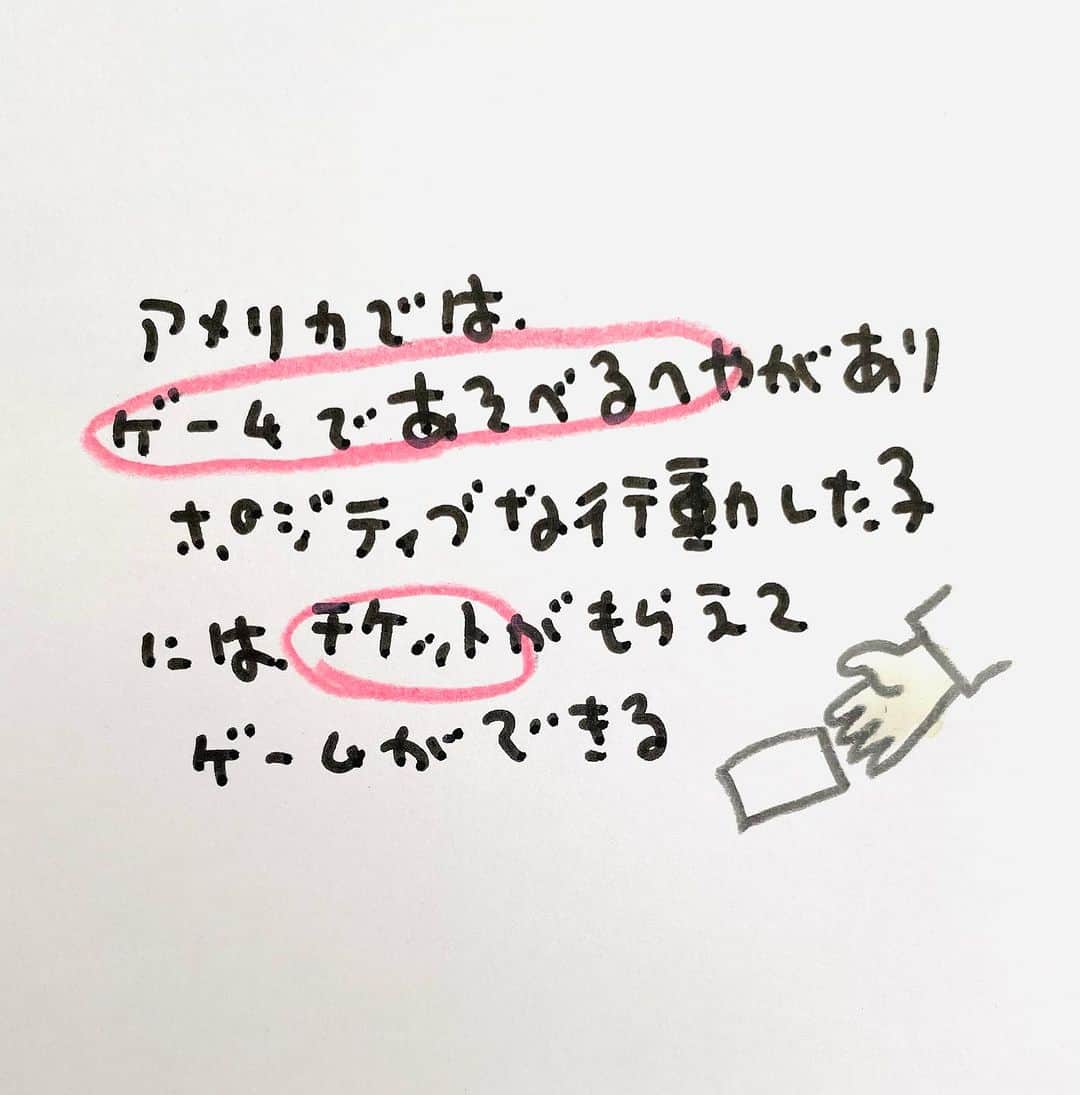 アメリカでは、
ゲームであそべるへやがあり
ポジティブな行動した子
には チケットがもらえて
ゲームができる